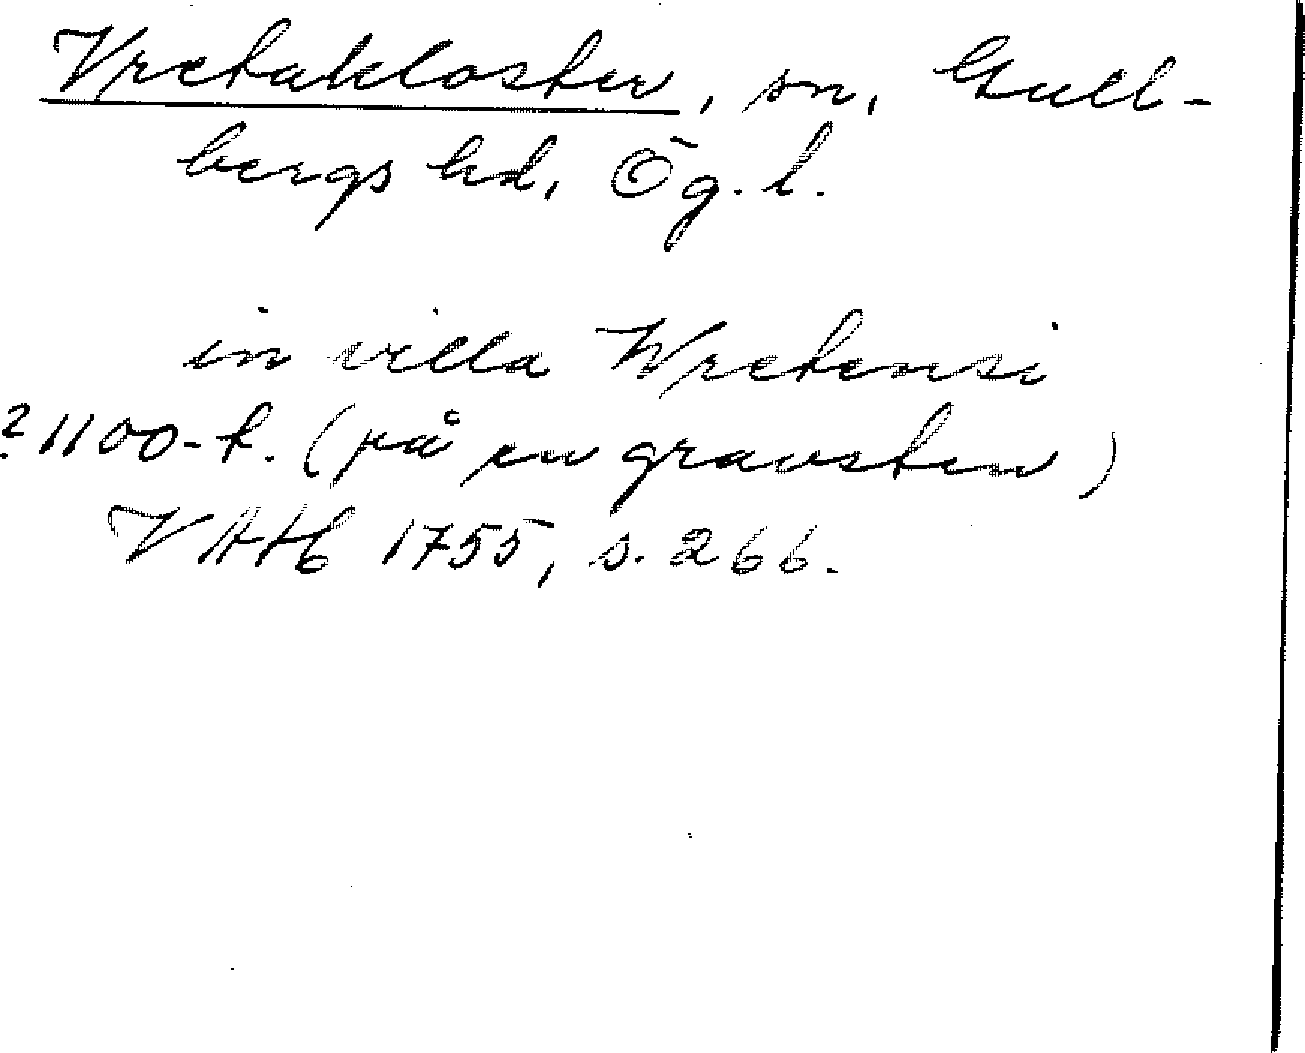 Vretakloster, sn, Gull-
bergs hd, Ög. l.
in villa Wretensi
? 1100-t. (på en gravsten)
VAHb 1755, s. 266.